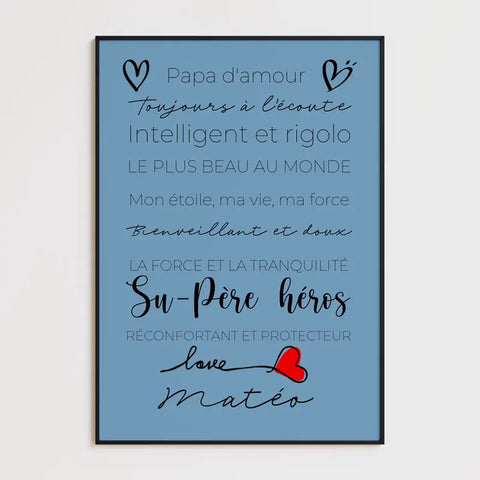 Papa d'amour
Toujours à l'écoute
Intelligent et rigolo
LE PLUS BEAU AU MONDE
Mon étoile, ma vie, ma force
Bienveillant et doux
LA FORCE ET LA TRANQUILITÉ
Su-Père héros
RÉCONFORTANT ET PROTECTEUR
love
Matéo